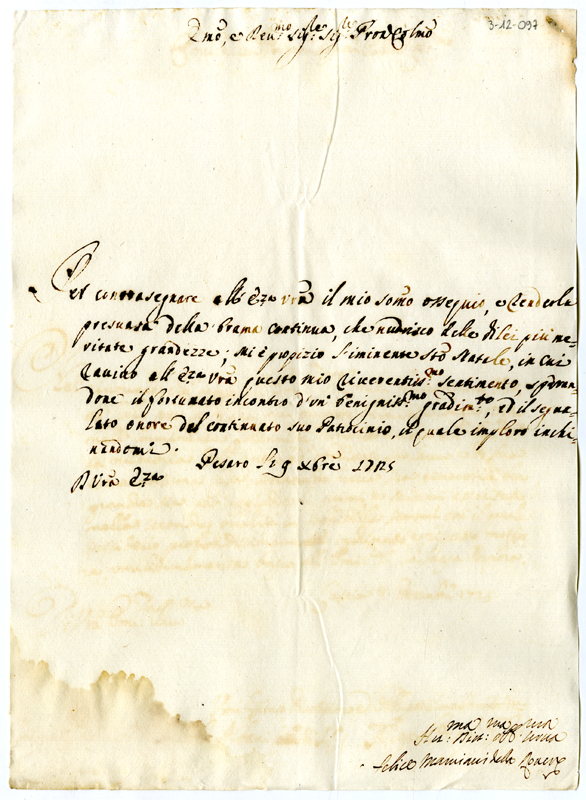 3-12-097
Emo, e Reu.mo Sig.re Sig.re Pron Colmo
Per contrasegnare all' Eza Vra il mio somo ossequio, e renderla
presuasa della brama continua, che nudrisco delle di lei più me-
ritate grandezze; mi è propizio l'iminente Sto Natale, in cui
ravivo all' Eza Vra questo mio riverentiss.mo sentimento, speran-
done il fortunato incontro d'un benigniss.mo gradim.to, ed il segna-
lato onore del continuato suo Patrocinio, il quale imploro inchi-
nandomi.
Pesaro li 9 Xbre 1725
D Vra Eza
Hu.ma Diu.ma Obb.ma
Felice Mamiani della Rovere